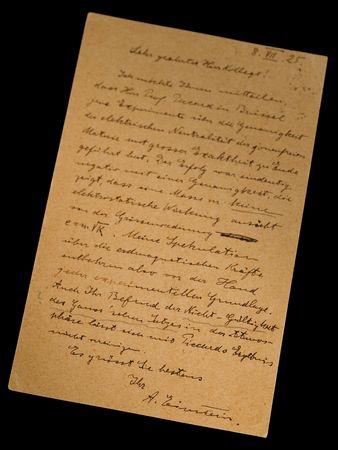 8. VII. 25.
Sehr geehrter Herr Kollege!
Ich möchte Ihnen mitteilen,
dass Herr Prof. Piccard in Brüssel
jene Experimente über die Genauigkeit
der elektrischen Neutralität der
Materie mit grosser Exaktheit zu Ende
geführt hat. Der Erfolg war eindeutig
negativ mit einer Genauigkeit, die
zeigt, dass eine Masse m keine
elektrostatische Wirkung ausübt
von der Grössenordnung
Meine Spekulation
über die erdmagnetischen Kräfte
entbehren also vor der Hand
jeder experimentellen Grundlage.
Auch Ihr Befund der Nicht-Gültigkeit
des Gauss'schen Satzes in der Atmos-
phäre lässt sich mit Piccards Ergebnis
nicht vereinigen.
Es grüsst Sie bestens
Ihr
A. Einstein.